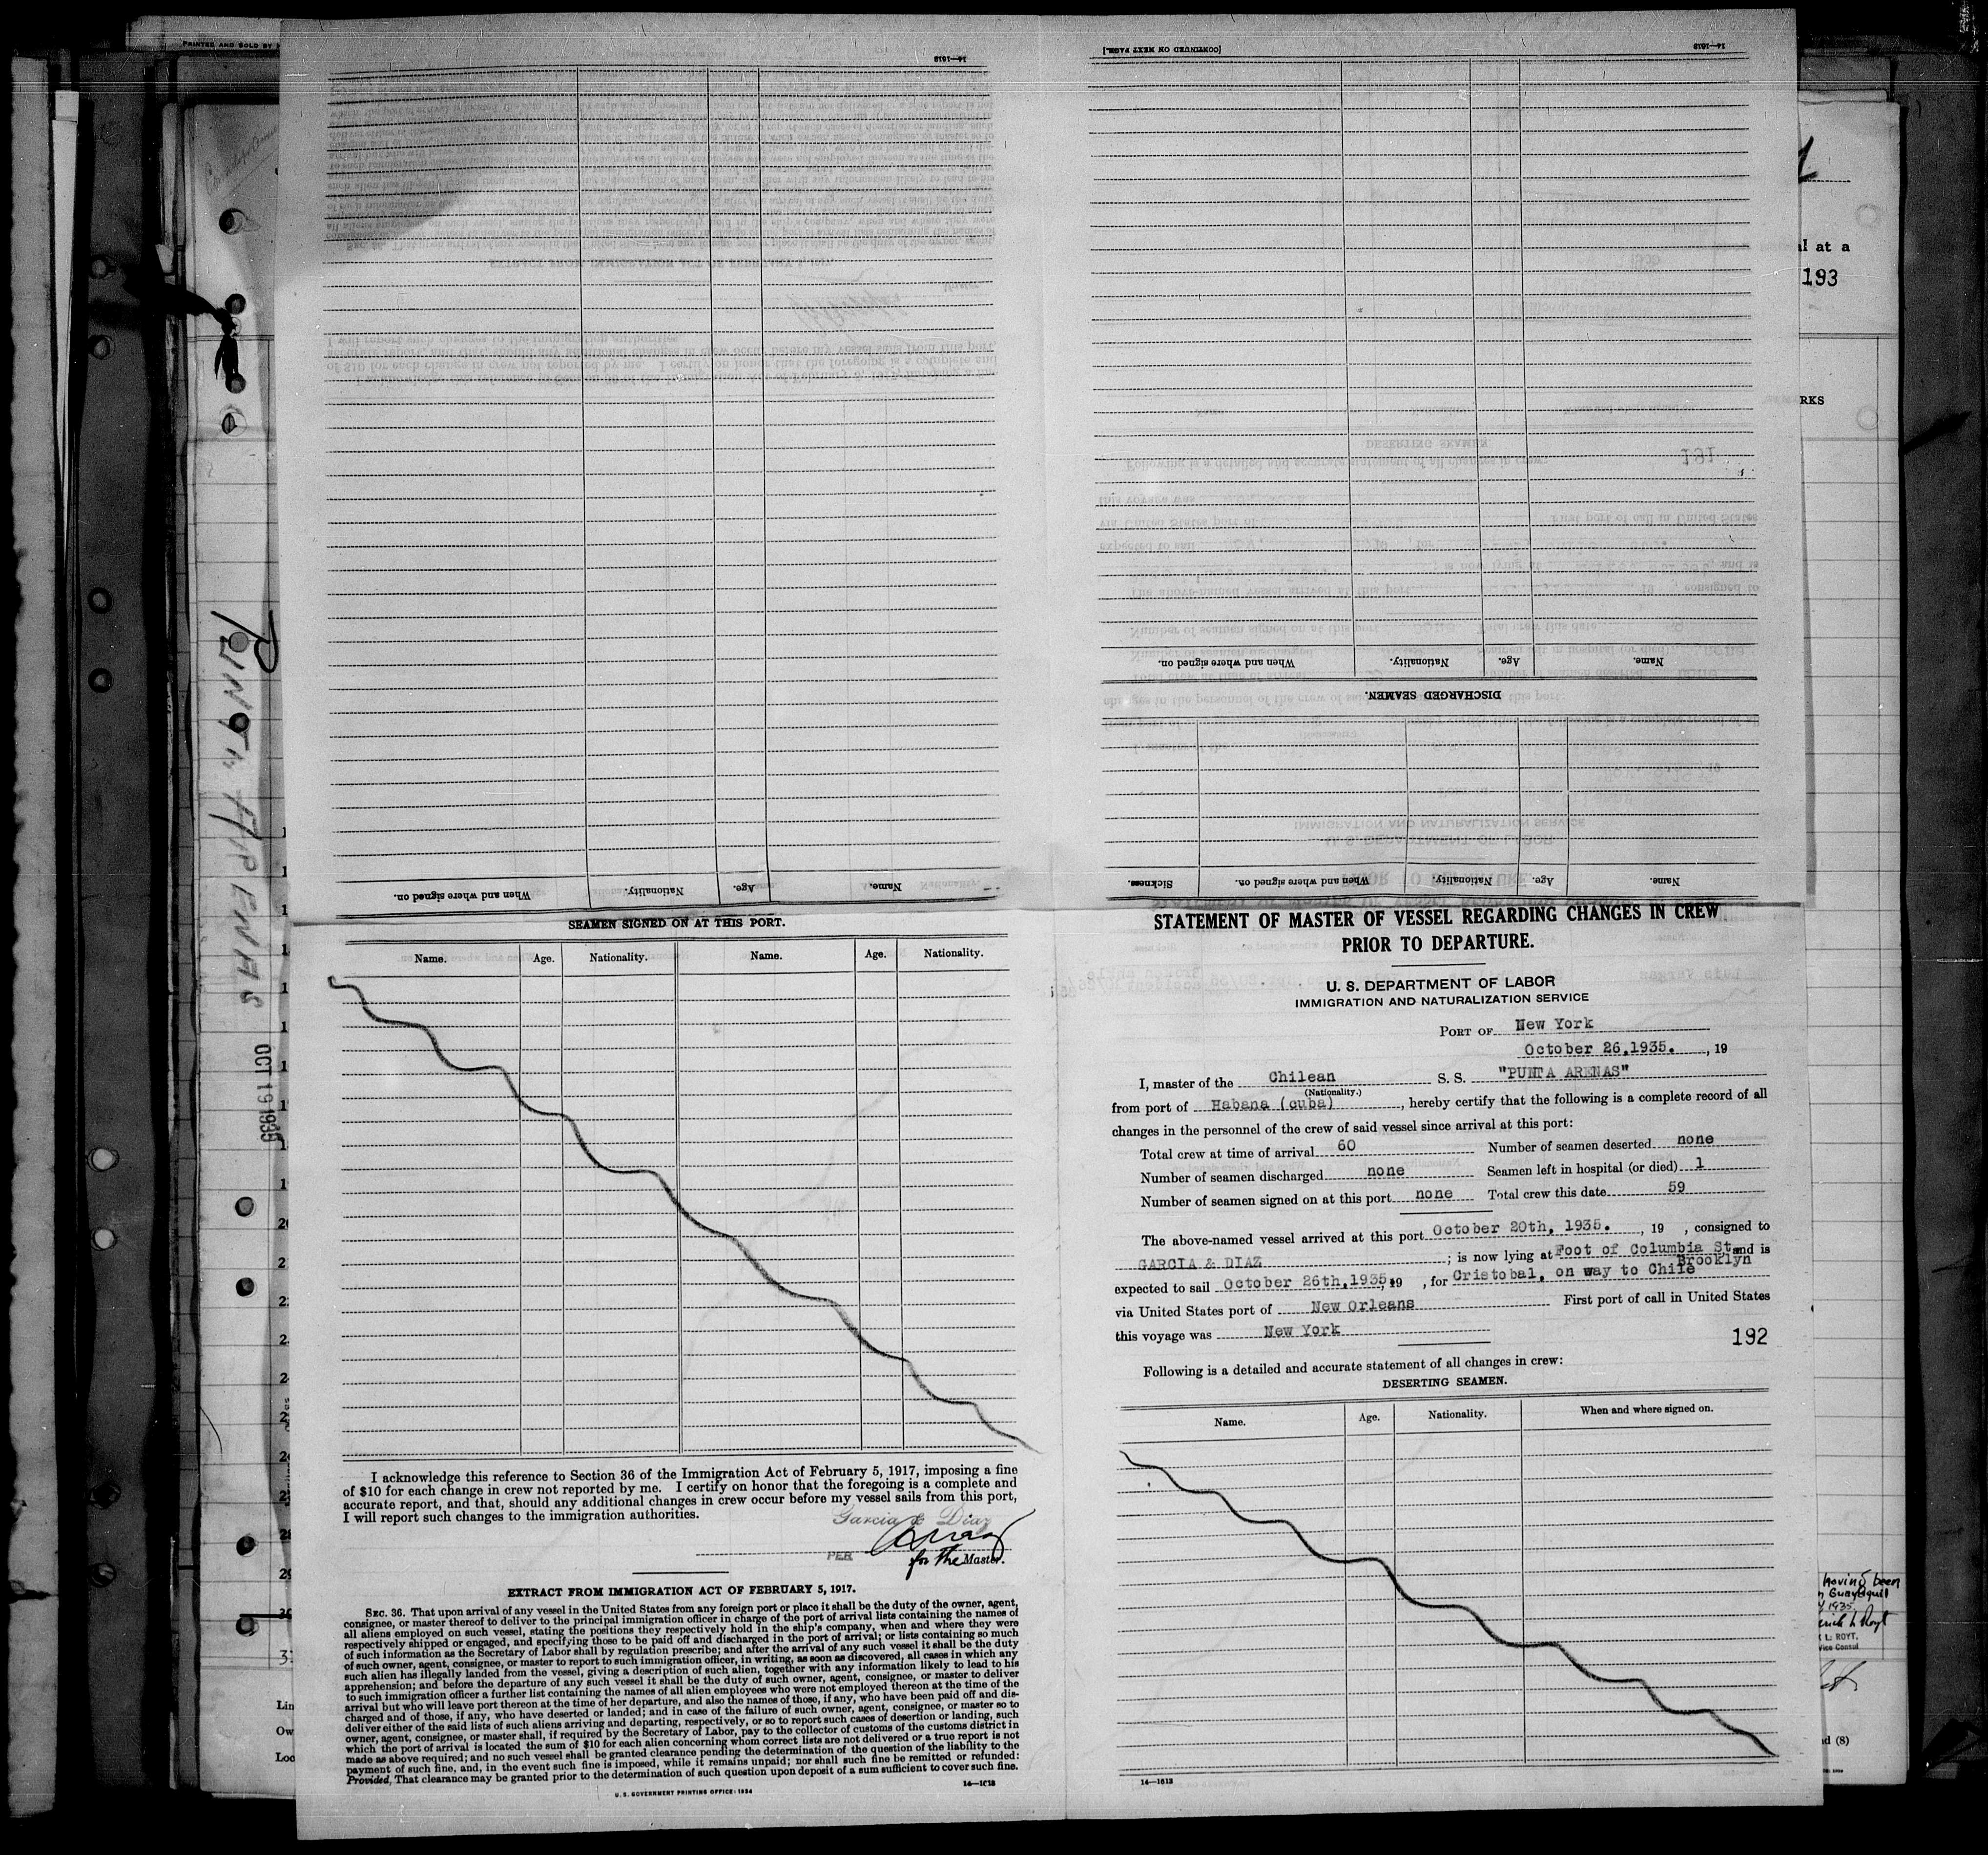 PRINTED AND SOLD BY
14—1613
[CONTINUED ON NEXT PAGE.]
14—1613
al at a
193
RKS
When and where signed on.
Nationality.
Age.
Name.
When and where signed on.
Nationality.
Age.
Name.
DISCHARGED SEAMEN.
Sickness.
When and where signed on.
Nationality.
Age.
Name.
PUNTA ARENAS
OCT 19 1935
SEAMEN SIGNED ON AT THIS PORT.
Name. Age. Nationality. Name. Age. Nationality.
I acknowledge this reference to Section 36 of the Immigration Act of February 5, 1917, imposing a fine
of $10 for each change in crew not reported by me. I certify on honor that the foregoing is a complete and
accurate report, and that, should any additional changes in crew occur before my vessel sails from this port,
I will report such changes to the immigration authorities.
Garcia & Diaz
PER
for the Master.
EXTRACT FROM IMMIGRATION ACT OF FEBRUARY 5, 1917.
SEC. 36. That upon arrival of any vessel in the United States from any foreign port or place it shall be the duty of the owner, agent,
consignee, or master thereof to deliver to the principal immigration officer in charge of the port of arrival lists containing the names of
all aliens employed on such vessel, stating the positions they respectively hold in the ship's company, when and where they were
respectively shipped or engaged, and specifying those to be paid off and discharged in the port of arrival; or lists containing so much
of such information as the Secretary of Labor shall by regulation prescribe; and after the arrival of any such vessel it shall be the duty
of such owner, agent, consignee, or master to report to such immigration officer, in writing, as soon as discovered, all cases in which any
such alien has illegally landed from the vessel, giving a description of such alien, together with any information likely to lead to his
apprehension; and before the departure of any such vessel it shall be the duty of such owner, agent, consignee, or master to deliver
to such immigration officer a further list containing the names of all alien employees who were not employed thereon at the time of the
arrival but who will leave port thereon at the time of her departure, and also the names of those, if any, who have been paid off and dis-
charged and of those, if any, who have deserted or landed; and in case of the failure of such owner, agent, consignee, or master so to
deliver either of the said lists of such aliens arriving and departing, respectively, or so to report such cases of desertion or landing, such
owner, agent, consignee, or master shall, if required by the Secretary of Labor, pay to the collector of customs of the customs district in
which the port of arrival is located the sum of $10 for each alien concerning whom correct lists are not delivered or a true report is not
made as above required; and no such vessel shall be granted clearance pending the determination of the question of the liability to the
payment of such fine, and, in the event such fine is imposed, while it remains unpaid; nor shall such fine be remitted or refunded:
Provided, That clearance may be granted prior to the determination of such question upon deposit of a sum sufficient to cover such fine.
U. S. GOVERNMENT PRINTING OFFICE: 1934
14—1613
STATEMENT OF MASTER OF VESSEL REGARDING CHANGES IN CREW
PRIOR TO DEPARTURE.
U. S. DEPARTMENT OF LABOR
IMMIGRATION AND NATURALIZATION SERVICE
PORT OF New York
October 26,1935. , 19
I, master of the Chilean S. S. "PUNTA ARENAS"
(Nationality.)
from port of Habana (cuba) , hereby certify that the following is a complete record of all
changes in the personnel of the crew of said vessel since arrival at this port:
Total crew at time of arrival 60 Number of seamen deserted none
Number of seamen discharged none Seamen left in hospital (or died) 1
Number of seamen signed on at this port none Total crew this date 59
The above-named vessel arrived at this port October 20th, 1935. , 19 , consigned to
GARCIA & DIAZ ; is now lying at Foot of Columbia St. and is
Brooklyn
expected to sail October 26th,1935, 19 , for Cristobal, on way to Chile
via United States port of New Orleans First port of call in United States
this voyage was New York
192
Following is a detailed and accurate statement of all changes in crew:
DESERTING SEAMEN.
Name. Age. Nationality. When and where signed on.
14—1613
having been
Guayaquil
1935
L. ROYT.
Vice Consul
nd (8)
Lin
Ow
Loc